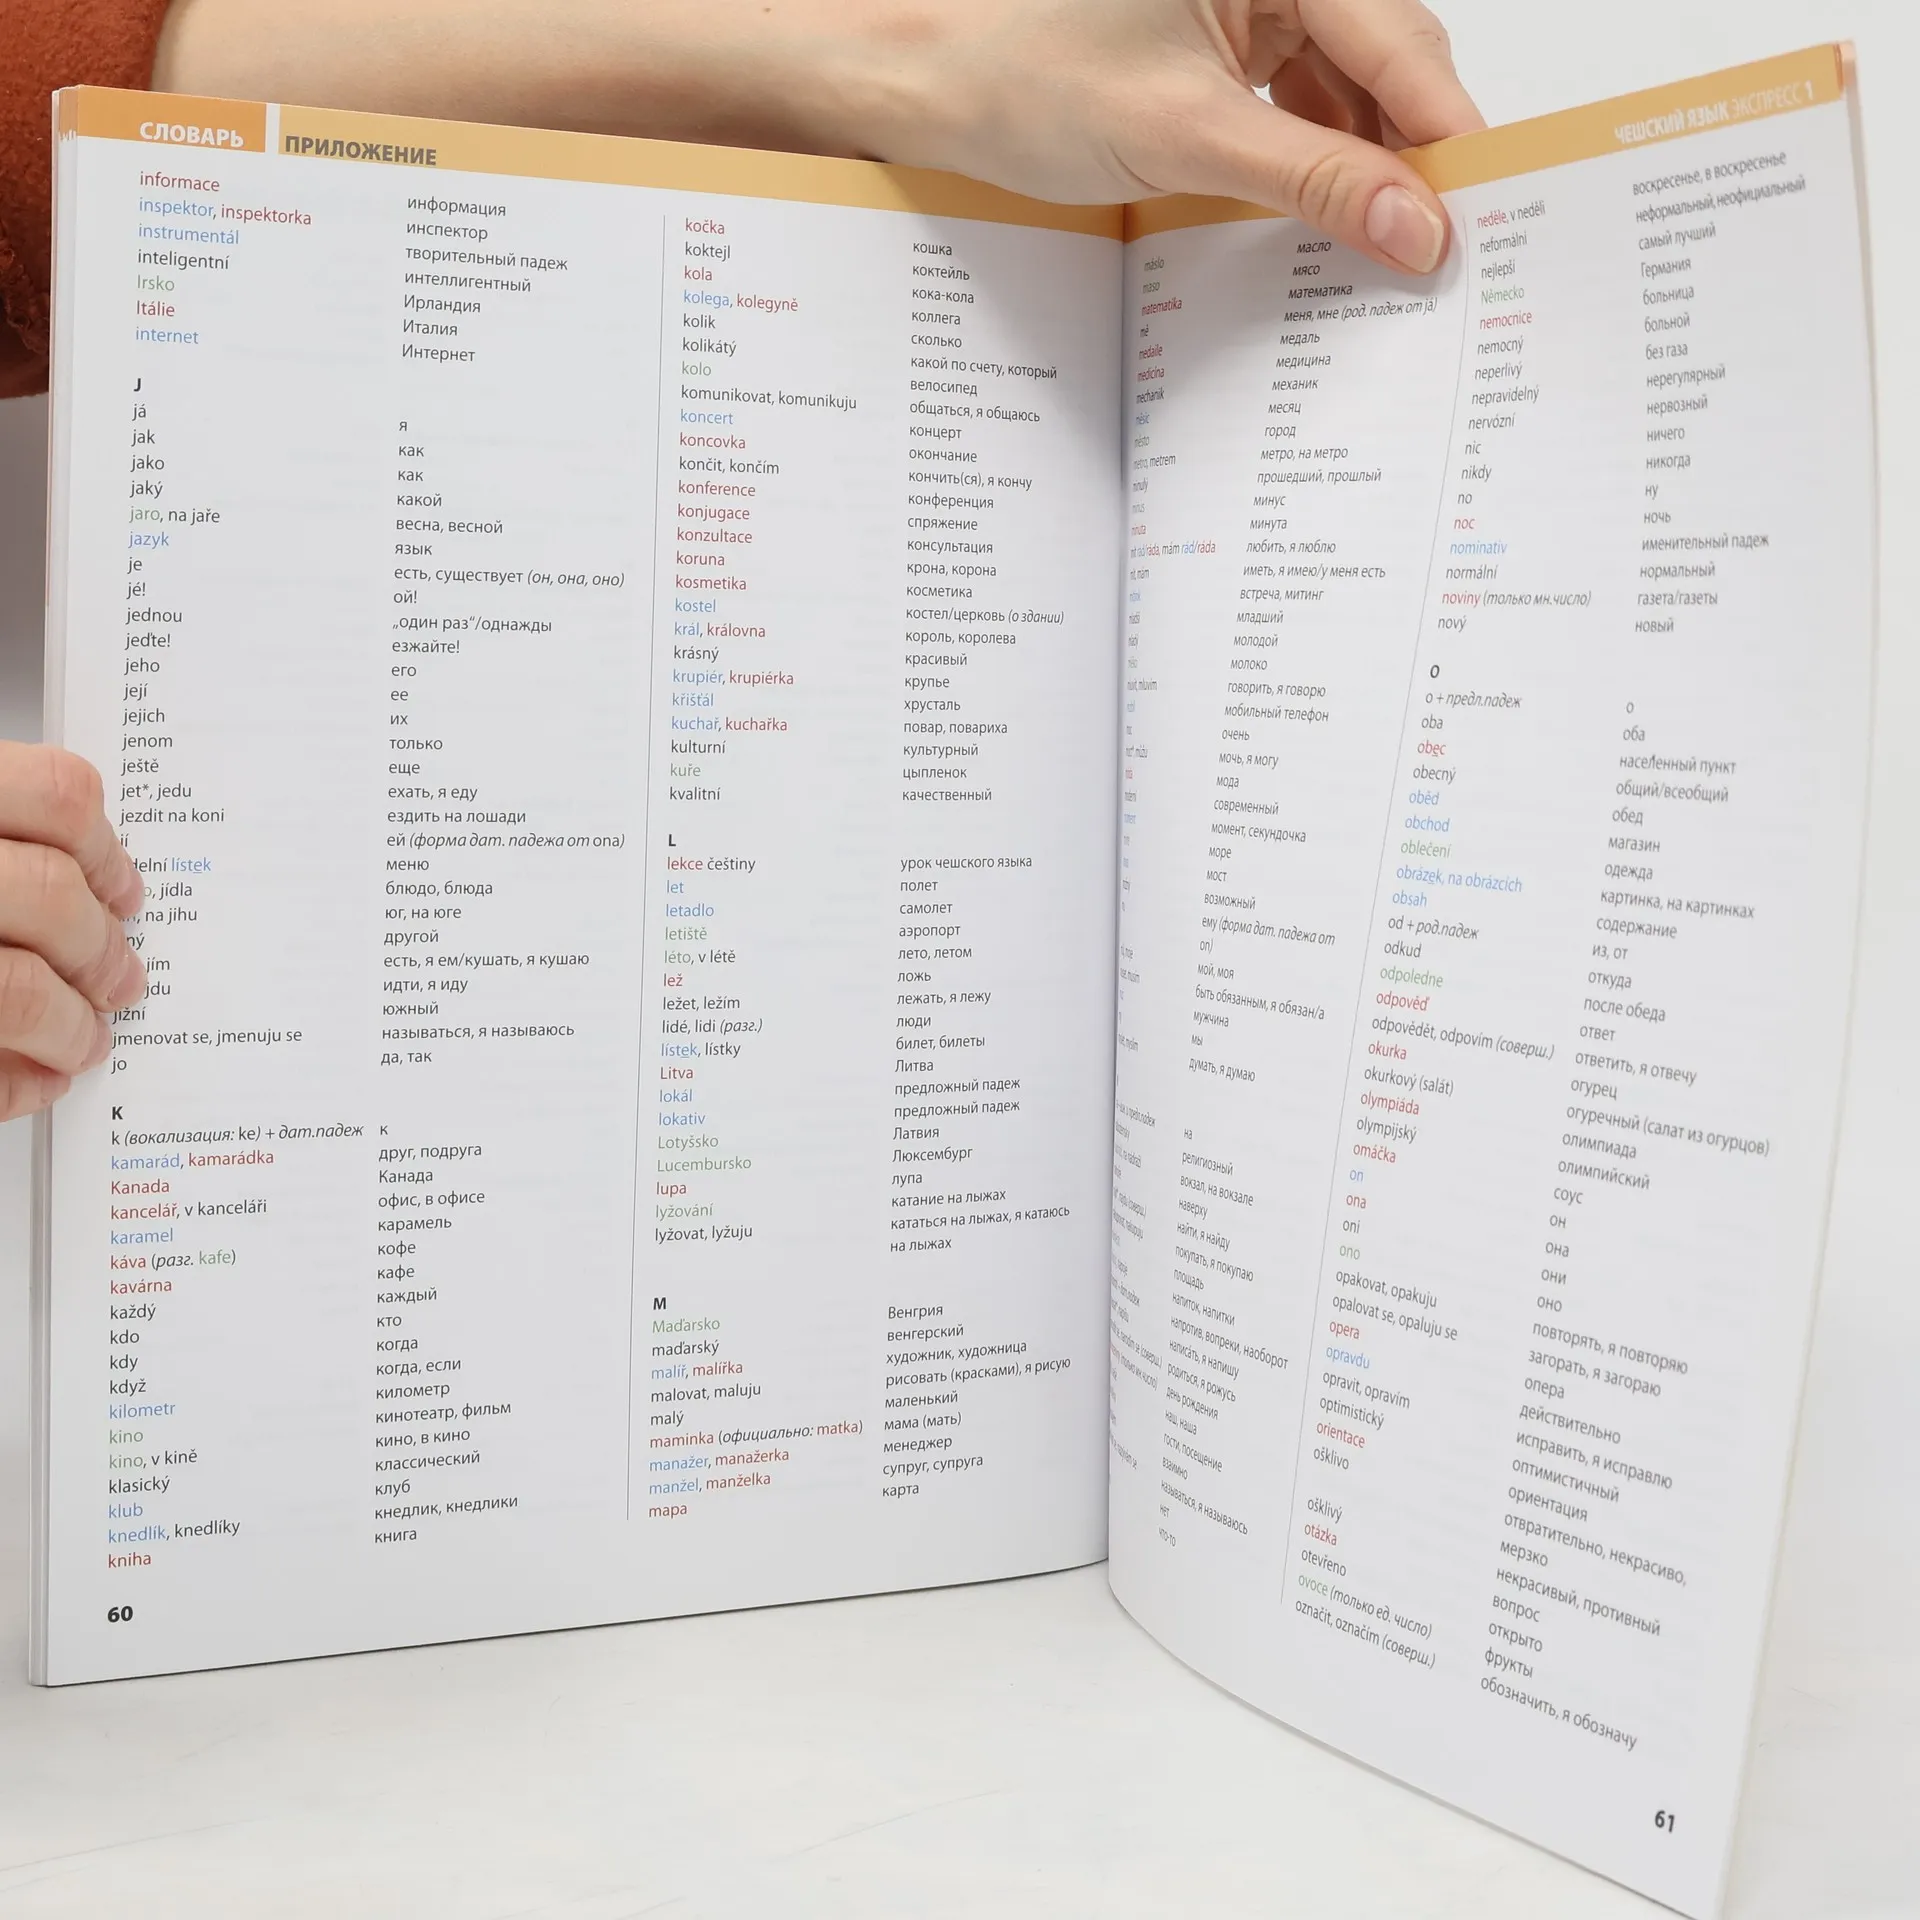 СЛОВАРЬ ПРИЛОЖЕНИЕ
informace информация
inspektor, inspektorka инспектор
instrumentál творительный падеж
inteligentní интеллигентный
Irsko Ирландия
Itálie Италия
internet Интернет
J
já я
jak как
jako как
jaký какой
jaro, na jaře весна, весной
jazyk язык
je есть, существует (он, она, оно)
jé! ой!
jednou „один раз“/однажды
jeďte! езжайте!
jeho его
její ее
jejich их
jenom только
ještě еще
jet*, jedu ехать, я еду
jezdit na koni ездить на лошади
jí ей (форма дат. падежа от ona)
delní lístek меню
o, jídla блюдо, блюда
, na jihu юг, на юге
ný другой
jím есть, я ем/кушать, я кушаю
jdu идти, я иду
jižní южный
jmenovat se, jmenuju se называться, я называюсь
jo да, так
K
k (вокализация: ke) + дат.падеж к
kamarád, kamarádka друг, подруга
Kanada Канада
kancelář, v kanceláři офис, в офисе
karamel карамель
káva (разг. kafe) кофе
kavárna кафе
každý каждый
kdo кто
kdy когда
když когда, если
kilometr километр
kino кинотеатр, фильм
kino, v kině кино, в кино
klasický классический
klub клуб
knedlík, knedlíky кнедлик, кнедлики
kniha книга
60
kočka кошка
koktejl коктейль
kola кока-кола
kolega, kolegyně коллега
kolik сколько
kolikátý какой по счету, который
kolo велосипед
komunikovat, komunikuju общаться, я общаюсь
koncert концерт
koncovka окончание
končit, končím кончить(ся), я кончу
konference конференция
konjugace спряжение
konzultace консультация
koruna крона, корона
kosmetika косметика
kostel костел/церковь (о здании)
král, královna король, королева
krásný красивый
krupiér, krupiérka крупье
křišťál хрусталь
kuchař, kuchařka повар, повариха
kulturní культурный
kuře цыпленок
kvalitní качественный
L
lekce češtiny урок чешского языка
let полет
letadlo самолет
letiště аэропорт
léto, v létě лето, летом
lež ложь
ležet, ležím лежать, я лежу
lidé, lidi (разг.) люди
lístek, lístky билет, билеты
Litva Литва
lokál предложный падеж
lokativ предложный падеж
Lotyšsko Латвия
Lucembursko Люксембург
lupa лупа
lyžování катание на лыжах
lyžovat, lyžuju кататься на лыжах, я катаюсь
на лыжах
M
Maďarsko Венгрия
maďarský венгерский
malíř, malířka художник, художница
malovat, maluju рисовать (красками), я рисую
malý маленький
maminka (официально: matka) мама (мать)
manažer, manažerka менеджер
manžel, manželka супруг, супруга
mapa карта
ЧЕШСКИЙ ЯЗЫК ЭКСПРЕСС 1
máslo масло
maso мясо
matematika математика
mě меня, мне (род. падеж от já)
medaile медаль
medicína медицина
mechanik механик
měsíc месяц
město город
metro, metrem метро, на метро
minulý прошедший, прошлый
minus минус
minuta минута
mít rád/ráda, mám rád/ráda любить, я люблю
mít, mám иметь, я имею/у меня есть
встреча, митинг
младший
молодой
молоко
mluvím говорить, я говорю
мобильный телефон
очень
můžu мочь, я могу
мода
современный
момент, секундочка
море
мост
возможный
ему (форма дат. падежа от
on)
мой, моя
быть обязанным, я обязан/а
мужчина
мы
думать, я думаю
на
религиозный
вокзал, на вокзале
наверху
найти, я найду
покупать, я покупаю
площадь
напиток, напитки
напротив, вопреки, наоборот
написать, я напишу
родиться, я рожусь
день рождения
наш, наша
гости, посещение
взаимно
называться, я называюсь
нет
что-то
neděle, v neděli воскресенье, в воскресенье
neformální неформальный, неофициальный
nejlepší самый лучший
Německo Германия
nemocnice больница
nemocný больной
neperlivý без газа
nepravidelný нерегулярный
nervózní нервозный
nic ничего
nikdy никогда
no ну
noc ночь
nominativ именительный падеж
normální нормальный
noviny (только мн.число) газета/газеты
nový новый
O
o + предл.падеж о
oba оба
obec населенный пункт
obecný общий/всеобщий
oběd обед
obchod магазин
oblečení одежда
obrázek, na obrázcích картинка, на картинках
obsah содержание
od + род.падеж из, от
odkud откуда
odpoledne после обеда
odpověď ответ
odpovědět, odpovím (соверш.) ответить, я отвечу
okurka огурец
okurkový (salát) огуречный (салат из огурцов)
olympiáda олимпиада
olympijský олимпийский
omáčka соус
on он
ona она
oni они
ono оно
opakovat, opakuju повторять, я повторяю
opalovat se, opaluju se загорать, я загораю
opera опера
opravdu действительно
opravit, opravím исправить, я исправлю
optimistický оптимистичный
orientace ориентация
ošklivo отвратительно, некрасиво,
мерзко
ošklivý некрасивый, противный
otázka вопрос
otevřeno открыто
ovoce (только ед. число) фрукты
označit, označím (соверш.) обозначить, я обозначу
61